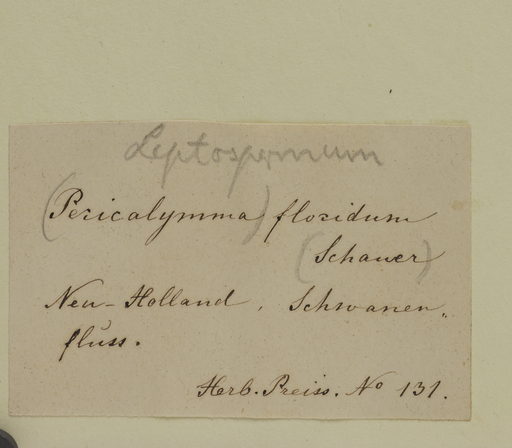 Leptospermum
(Pericalymma) floridum
(Schauer)
Neu-Holland, Schwanen„
fluss.
Herb. Preiss. No 131.